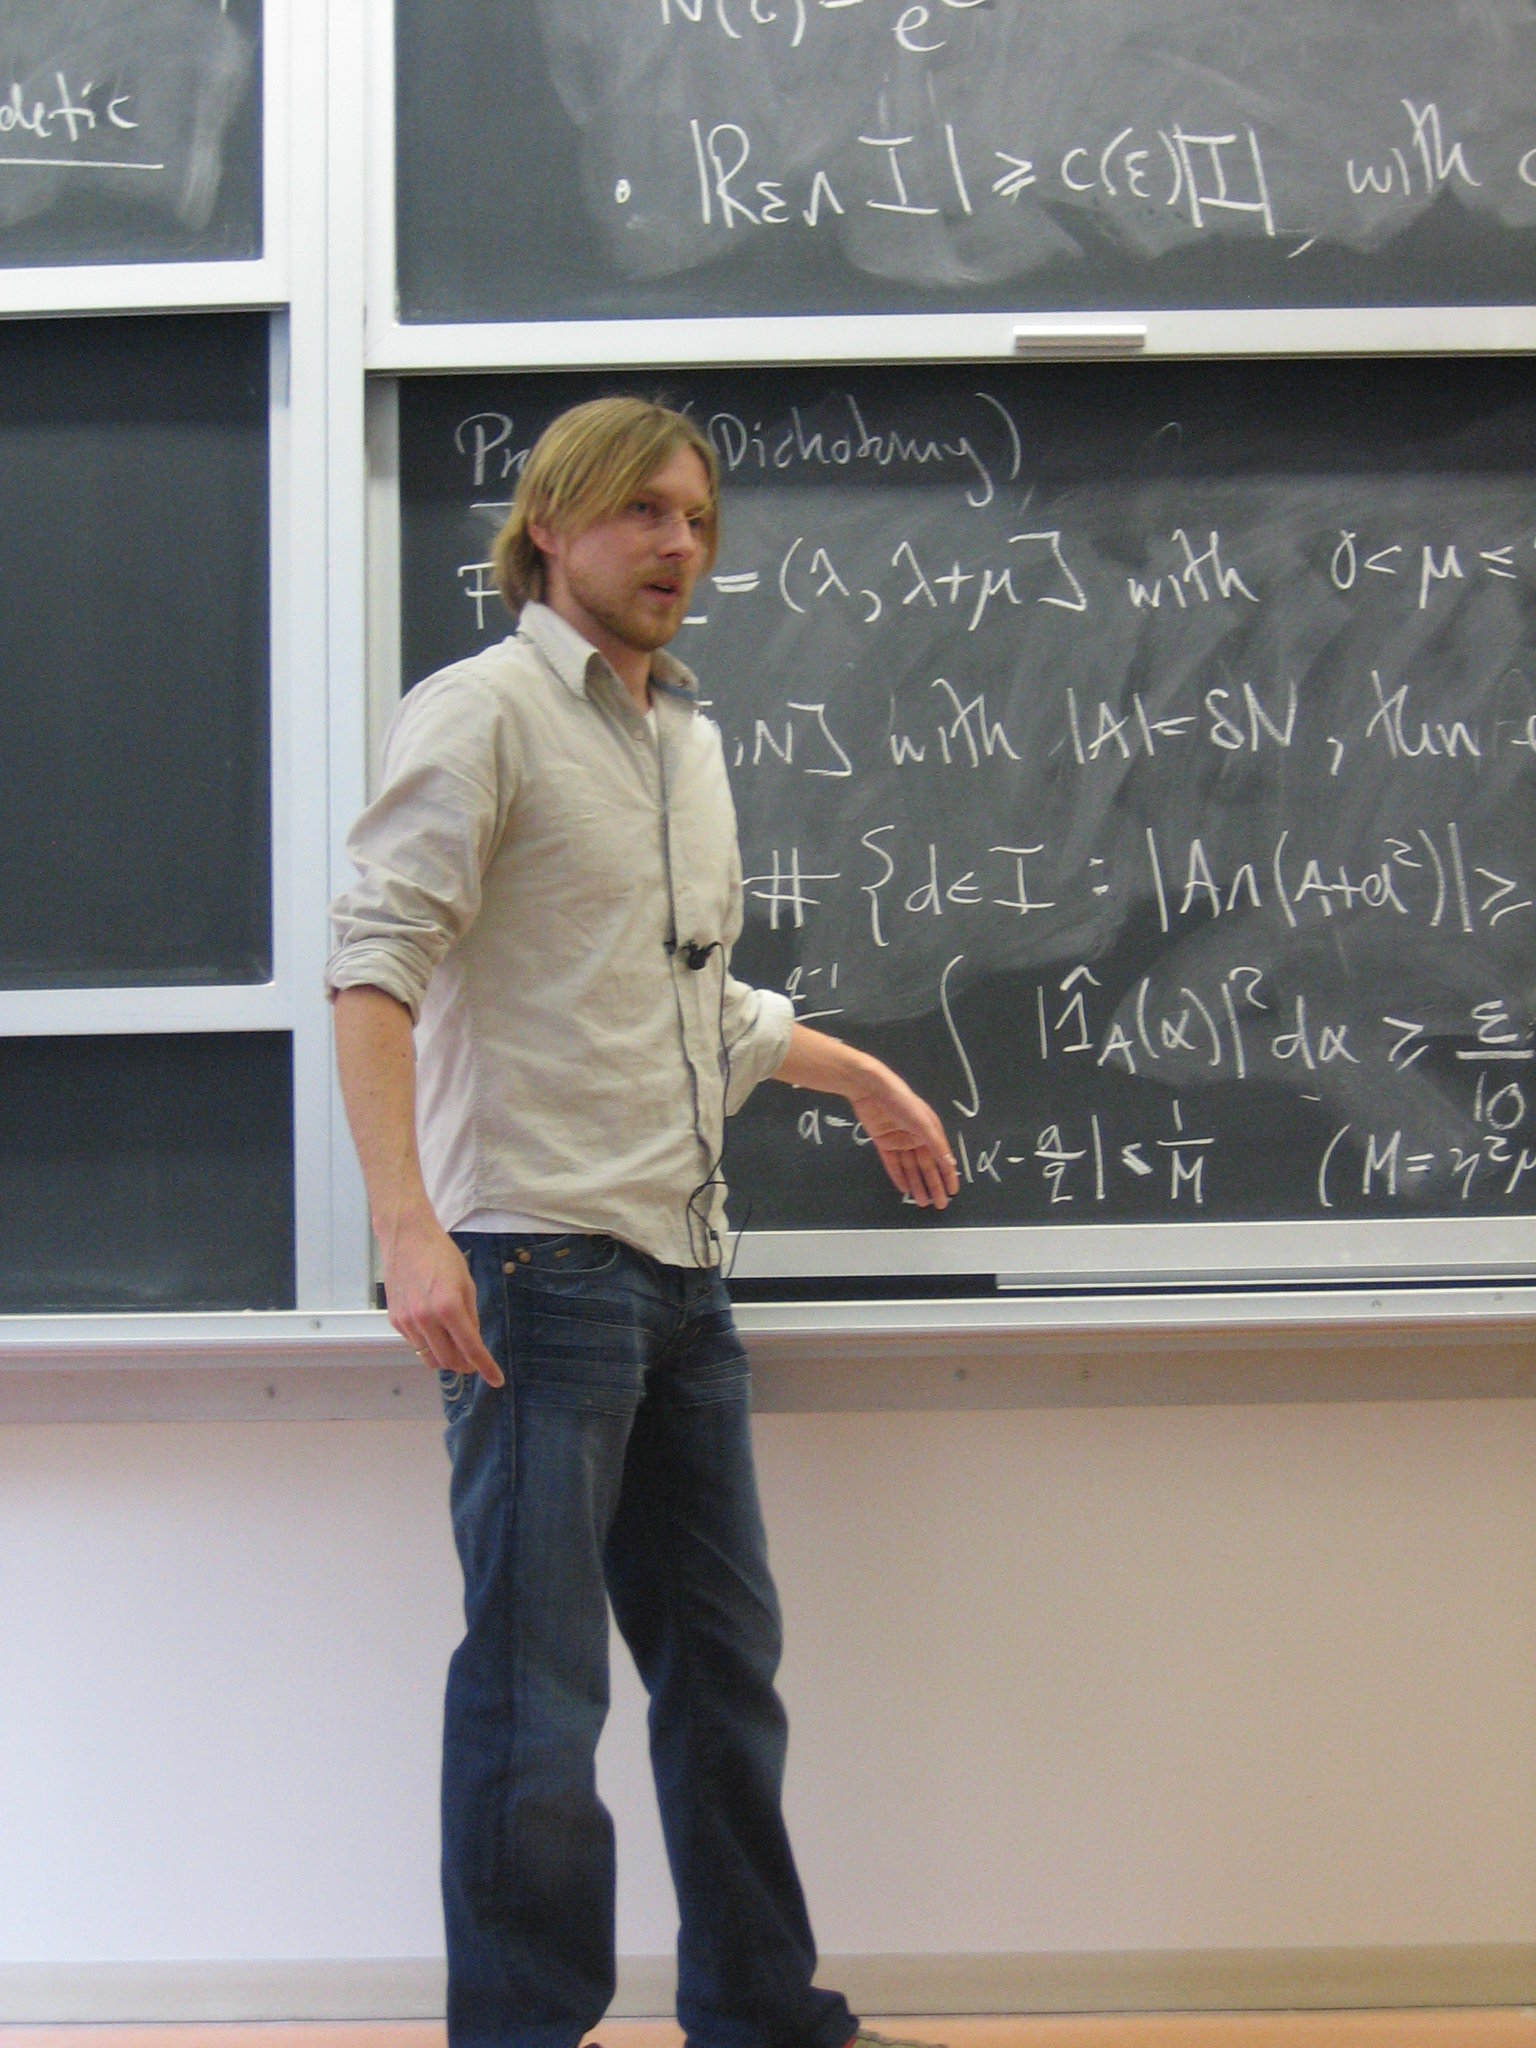 detic
N(ε) = e
• |R_ε ∩ I| ≥ c(ε)|I|, with
(Dichotomy)
= (λ, λ+μ] with 0 < μ ≤
, N] with |A| = δN, then
# {d ∈ I : |A ∩ (A+d²)| ≥
q-1 ∫ |1̂_A(α)|² dα ≥ ε/10
a= |α - a/q| ≤ 1/M (M = η²μ